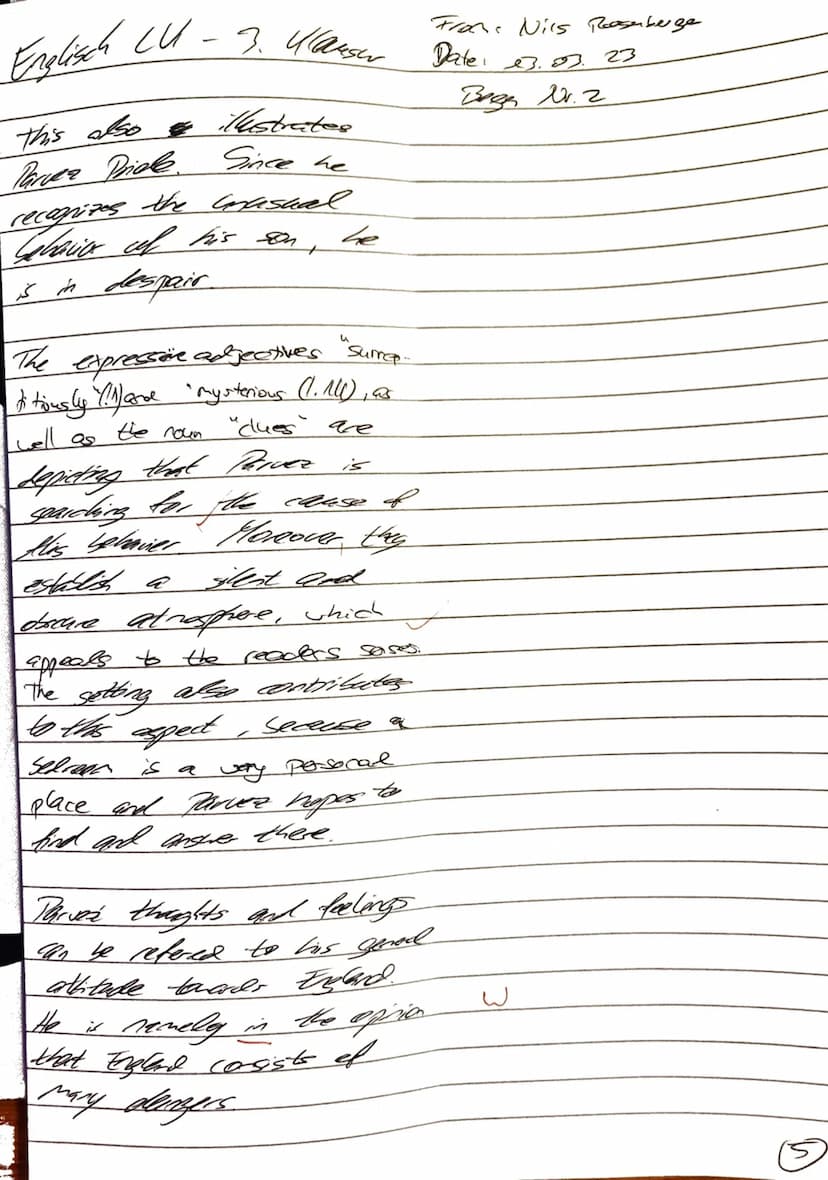 Englisch LU - 3. Klausur
From: Nils
Date: 23.03.23
Bogen Nr. 2
this also illustrates
Parvez Pride. Since he
recognizes the unusual
behavior of his son, he
is in despair.
The expressive adjectives "surrep-
titiously" (l.1) and "mysterious (l.14), as
well as the noun "clues" are
depicting that Parvez is
searching for the cause of
this behavior Moreover, they
establish a silent and
obscure atmosphere, which
appeals to the readers senses.
The setting also contributes
to this aspect, because a
bedroom is a very personal
place and Parvez hopes to
find and answer there.
Parvez thoughts and feelings
can be refered to his general
attitude towards England.
He is namely in the opinion
W
that England consists of
many dangers.
5